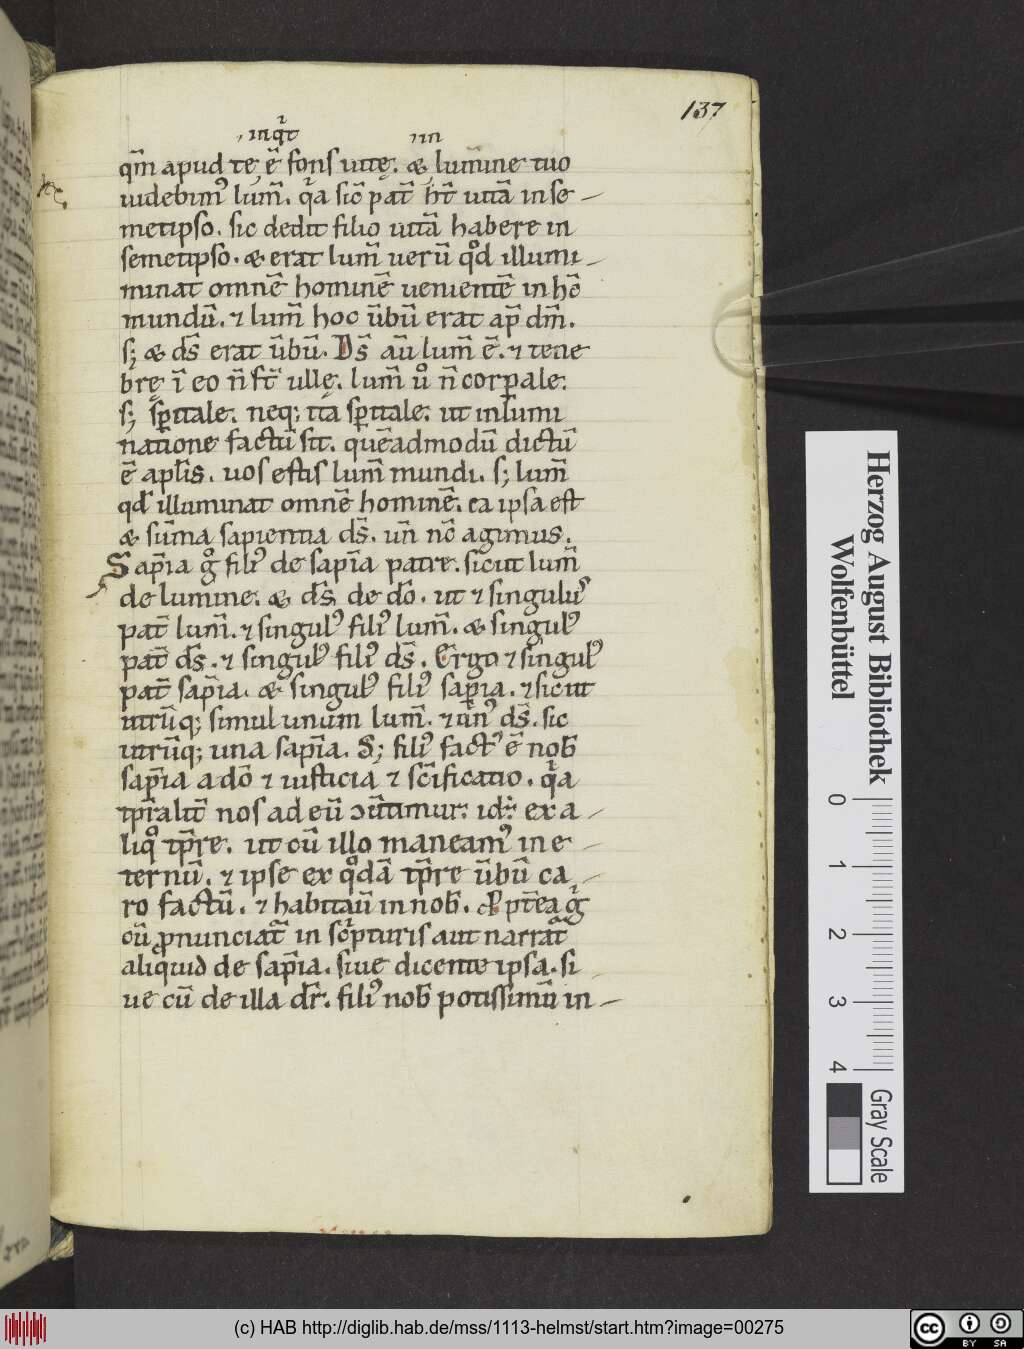 137
, inqͥt    in
qm̄ apud te, ē fons uitę. & lumine tuo
uidebimꝰ lum̄. qͥa sic̄ pat̄ ht̄ uitā in se
metipso. sic dedit filio uitā habere in
semetipso. & erat lum̄ uerū qd̊ illumi
minat omnē hominē uenientē in hc̄
mundū. ⁊ lum̄ hoc ūbū erat ap̄ dm̄.
s; & ds̄ erat ūbū. Ds̄ aū lum̄ ē. ⁊ tene
brę ī eo n̄ st̄ ullę. lum̄ ů n̄ corporale.
s; sp̄itale. neq; ita sp̄itale. ut inlumi
natione factū sit. quēadmodū dictū
ē aplīs. uos estis lum̄ mundi. s; lum̄
qd̄ illuminat omnē hominē. ea ipsa est
& sūma sapientia ds̄. un̄ nc̄ agimus.
Sap̄ia g̊ filiꝰ de sap̄ia patre. sicut lum̄
de lumine. & ds̄ de dō. ut ⁊ singulꝰ
pat̄ lum̄. ⁊ singulꝰ filiꝰ lum̄. & singulꝰ
pat̄ ds̄. ⁊ singulꝰ filiꝰ ds̄. Ergo ⁊ singulꝰ
pat̄ sap̄ia. & singulꝰ filiꝰ sap̄ia. ⁊ sicut
utrūq; simul unum lum̄. ⁊ un̄ꝰ ds̄. sic
utrūq; una sap̄ia. S; filiꝰ factꝰ ē nob̄
sap̄ia a dō ⁊ iusticia ⁊ sc̄ificatio. qͥa
tp̄ralit̄ nos ad eū ↄūtimur. id; ex a
liqͦ tp̄re. ut cū illo maneamꝰ in e
ternū. ⁊ ipse ex qͦdā tp̄re ūbū ca
ro factū. ⁊ habitauī in nob̄. Ppt̄ea gͥ
cū ꝓnunciat̄ in scͥpturis aut narrat̄
aliquid de sap̄ia. siue dicente ipsa. si
ue cū de illa dr̄. filiꝰ nob̄ potissimū in
Herzog August Bibliothek
Wolfenbüttel
0 1 2 3 4
Gray Scale
(c) HAB http://diglib.hab.de/mss/1113-helmst/start.htm?image=00275
cc BY SA